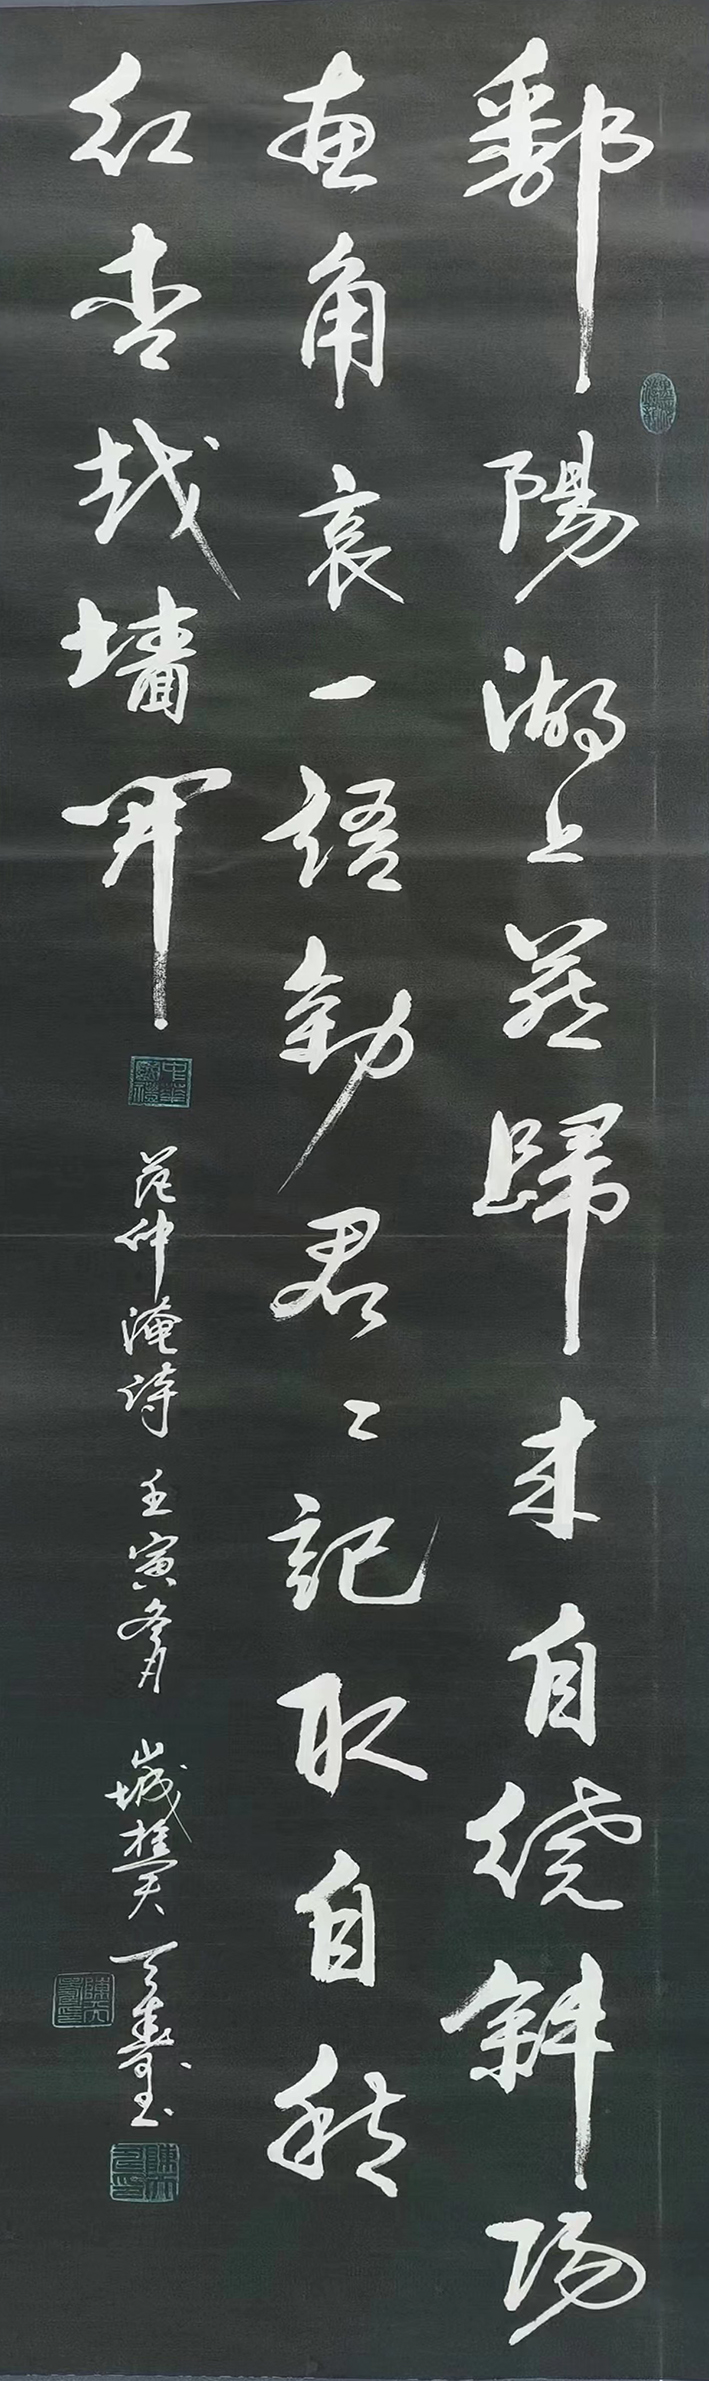 鄱陽湖上燕歸来自繞斜陽
畫角哀一語勸君〻記取自
紅杏越墻開
范仲淹詩 壬寅冬月 山城樵叟 天壽書